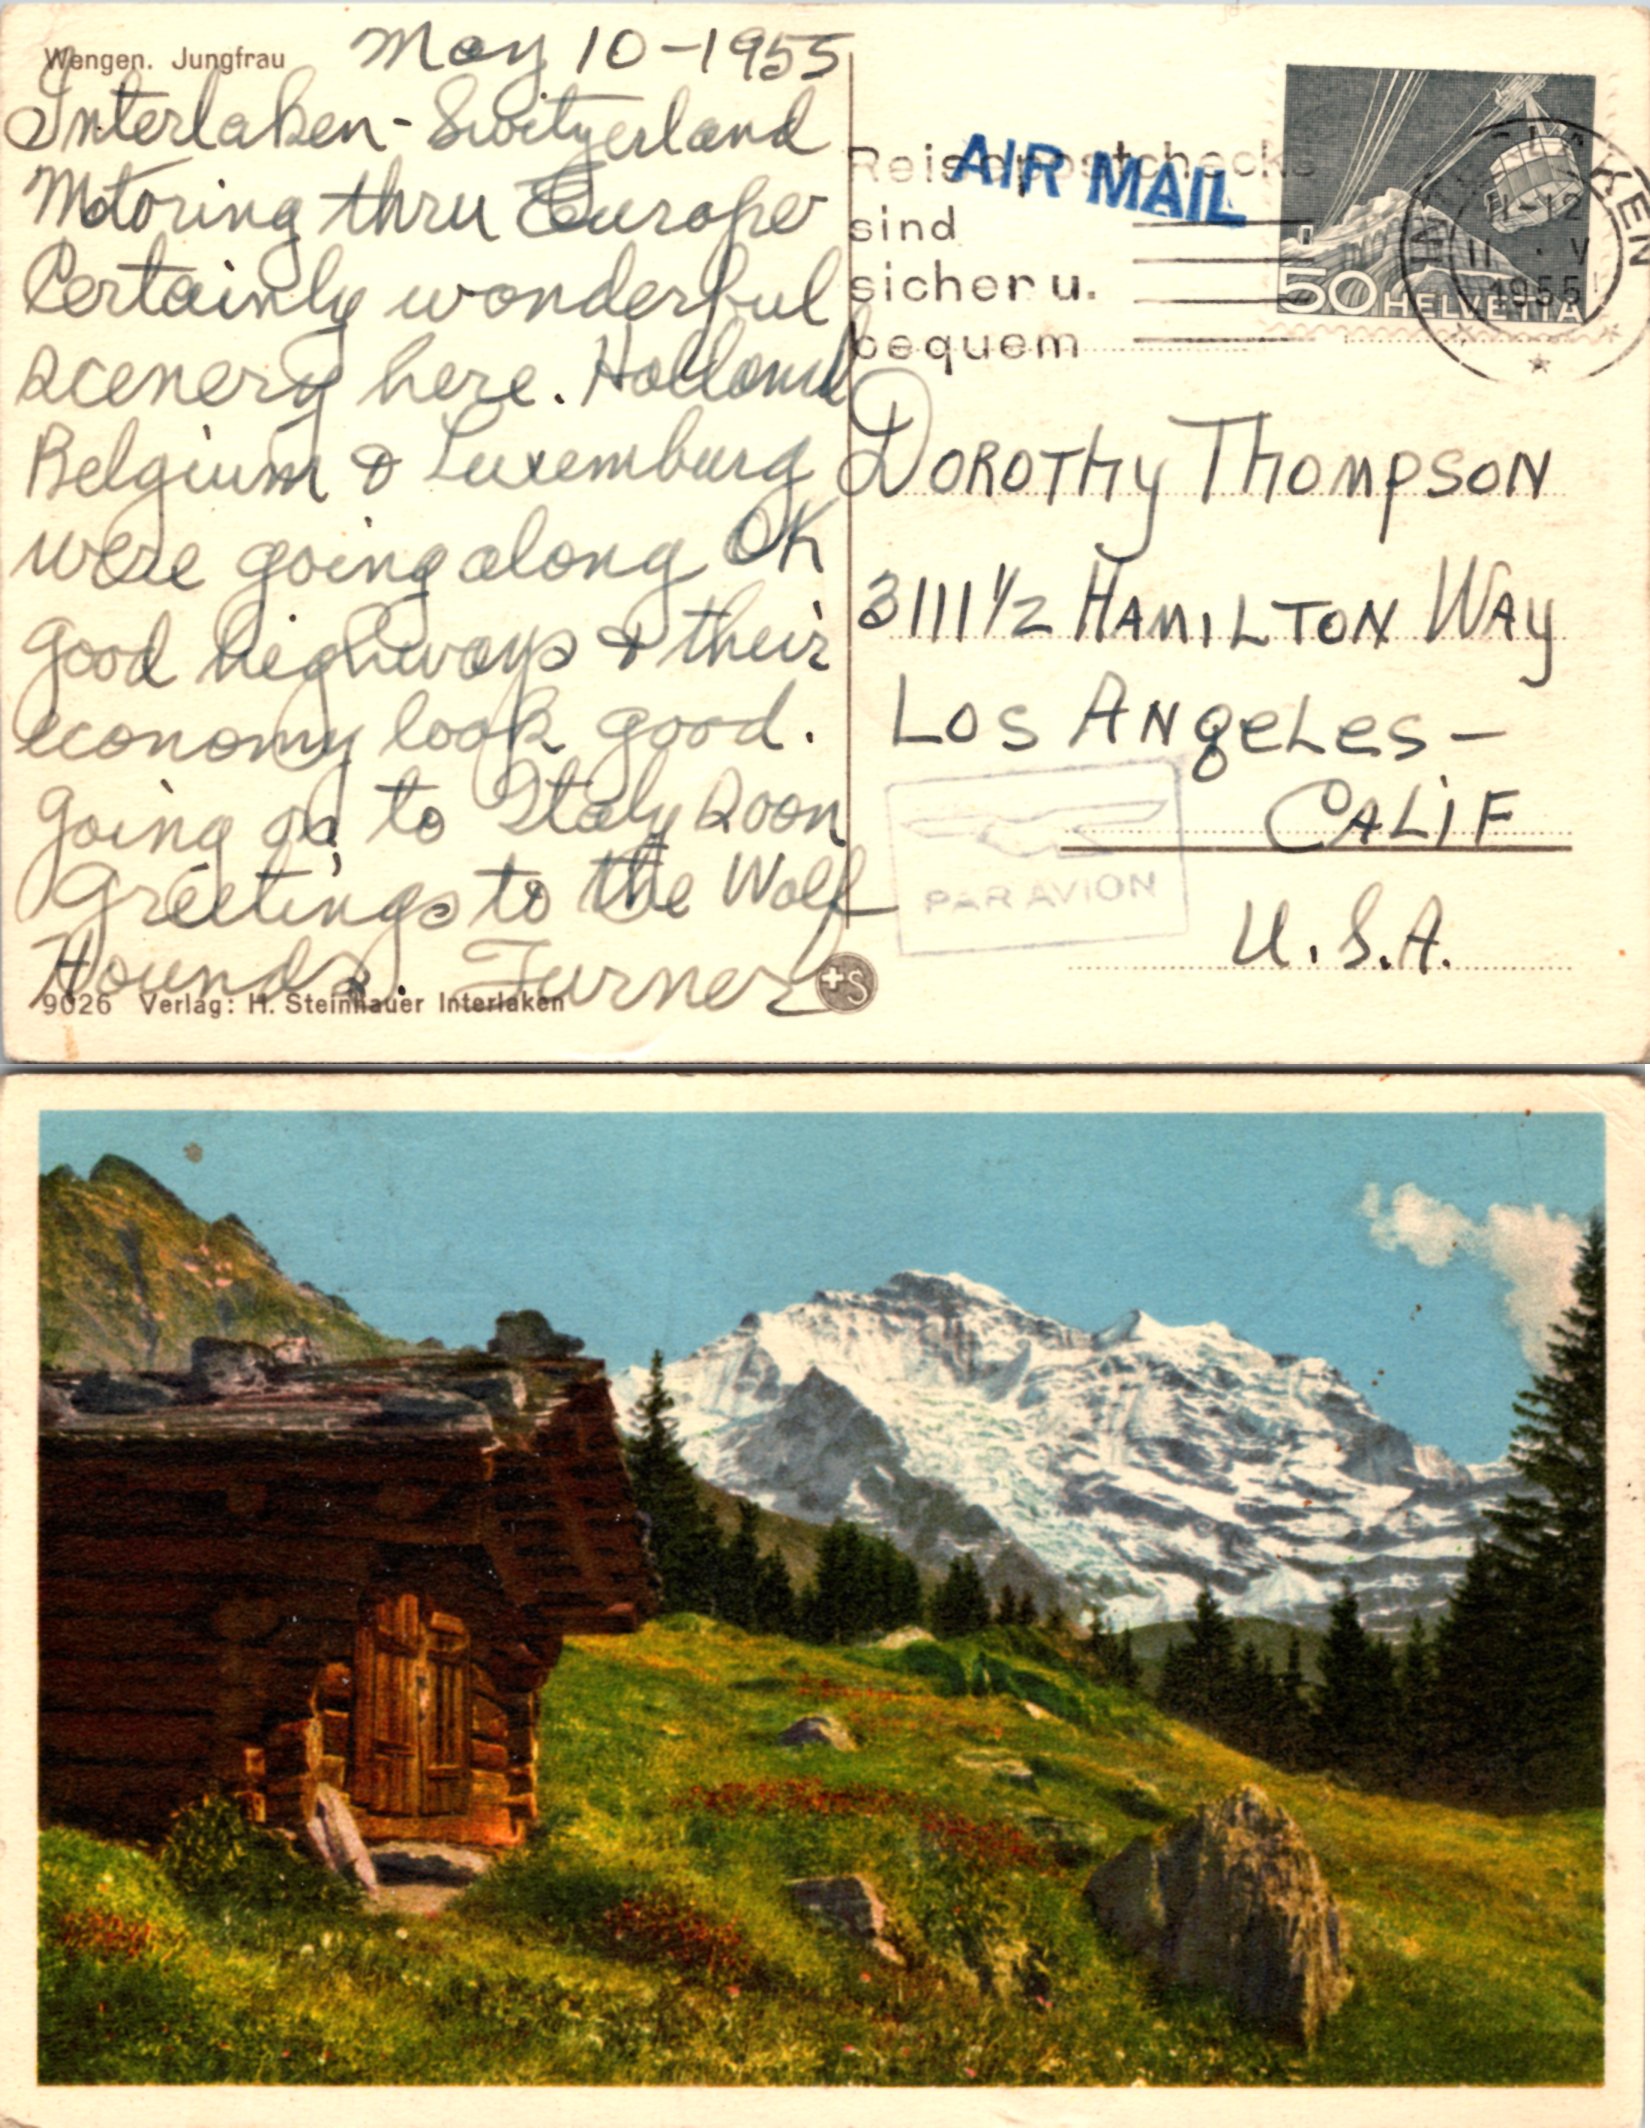 Wengen. Jungfrau
May 10-1955
Interlaken - Switzerland
Motoring thru Europe
Certainly wonderful
scenery here. Holland
Belgium & Luxemburg
were going along OK
good highways & their
economy look good.
going on to Italy soon
Greetings to the Wolf
Hounds. Turner
9026 Verlag: H. Steinhauer Interlaken
+S
Reisepostchecks
sind
sicher u.
bequem
AIR MAIL
50 HELVETIA
INTERLAKEN
11-12
11 · V
1955
DOROTHY THOMPSON
3111 1/2 HAMILTON WAY
LOS ANGELES -
CALIF
U.S.A.
PAR AVION